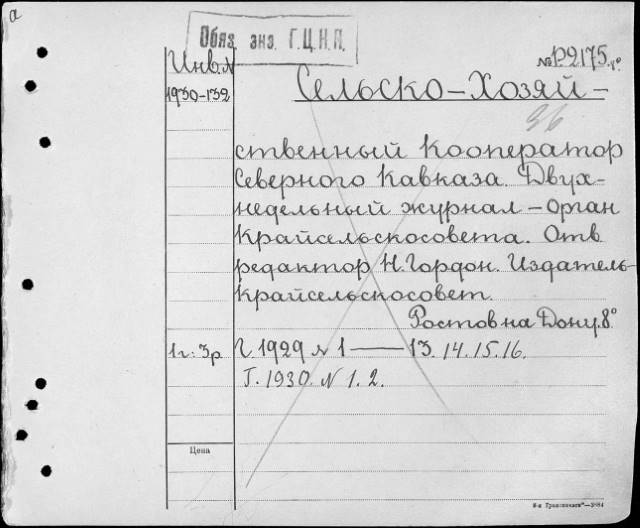 а
Обяз. экз. Г.Ц.К.П.
Инв. №
1930-132
№ Р2175. 8°
Сельско-Хозяй-
36
ственный Кооператор
Северного Кавказа. Двух-
недельный журнал – орган
Крайсельскосовета. Отв
редактор Н. Гордон. Издатель-
крайсельскосовет.
Ростов на Дону. 8°
1 г: 3 р
Г. 1929 № 1 — 13. 14. 15. 16.
Г. 1930. № 1. 2.
Цена